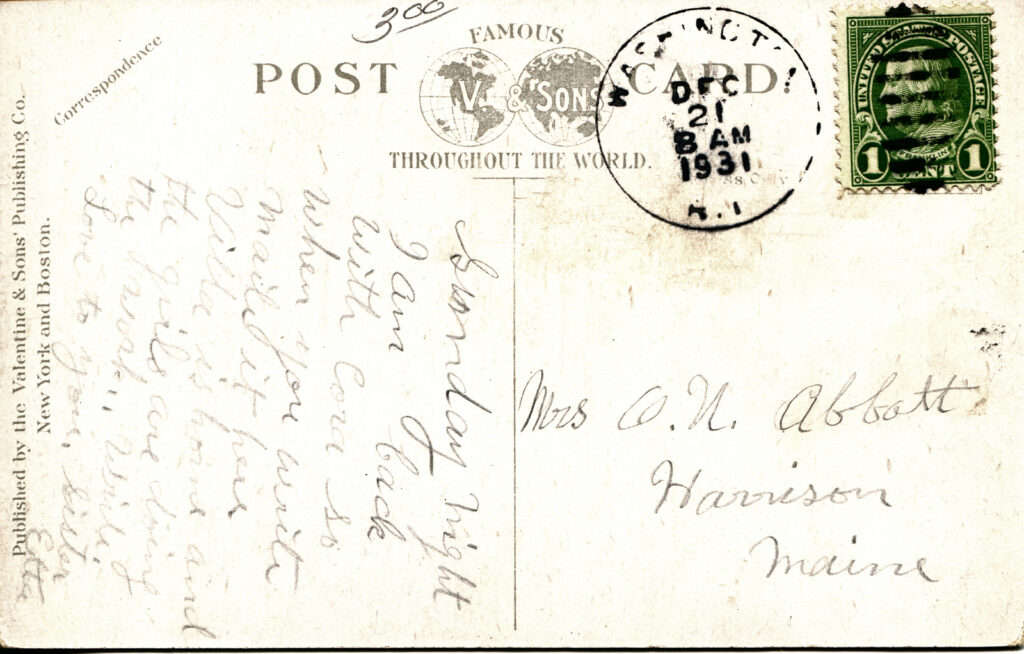 3.00
FAMOUS
POST CARD.
V. & SONS
THROUGHOUT THE WORLD.
Correspondence
Published by the Valentine & Sons' Publishing Co.
New York and Boston.
WASHINGTO
DEC
21
8 AM
1931
R.I
UNITED STATES POSTAGE
FRANKLIN
1 CENT 1
Sunday night
I am back
with Cora so
when you write
mail it here
Villa is home and
the girls are doing
the work. Write
Love to you, Sister
Etta
Mrs O. N. Abbott
Harrison
Maine